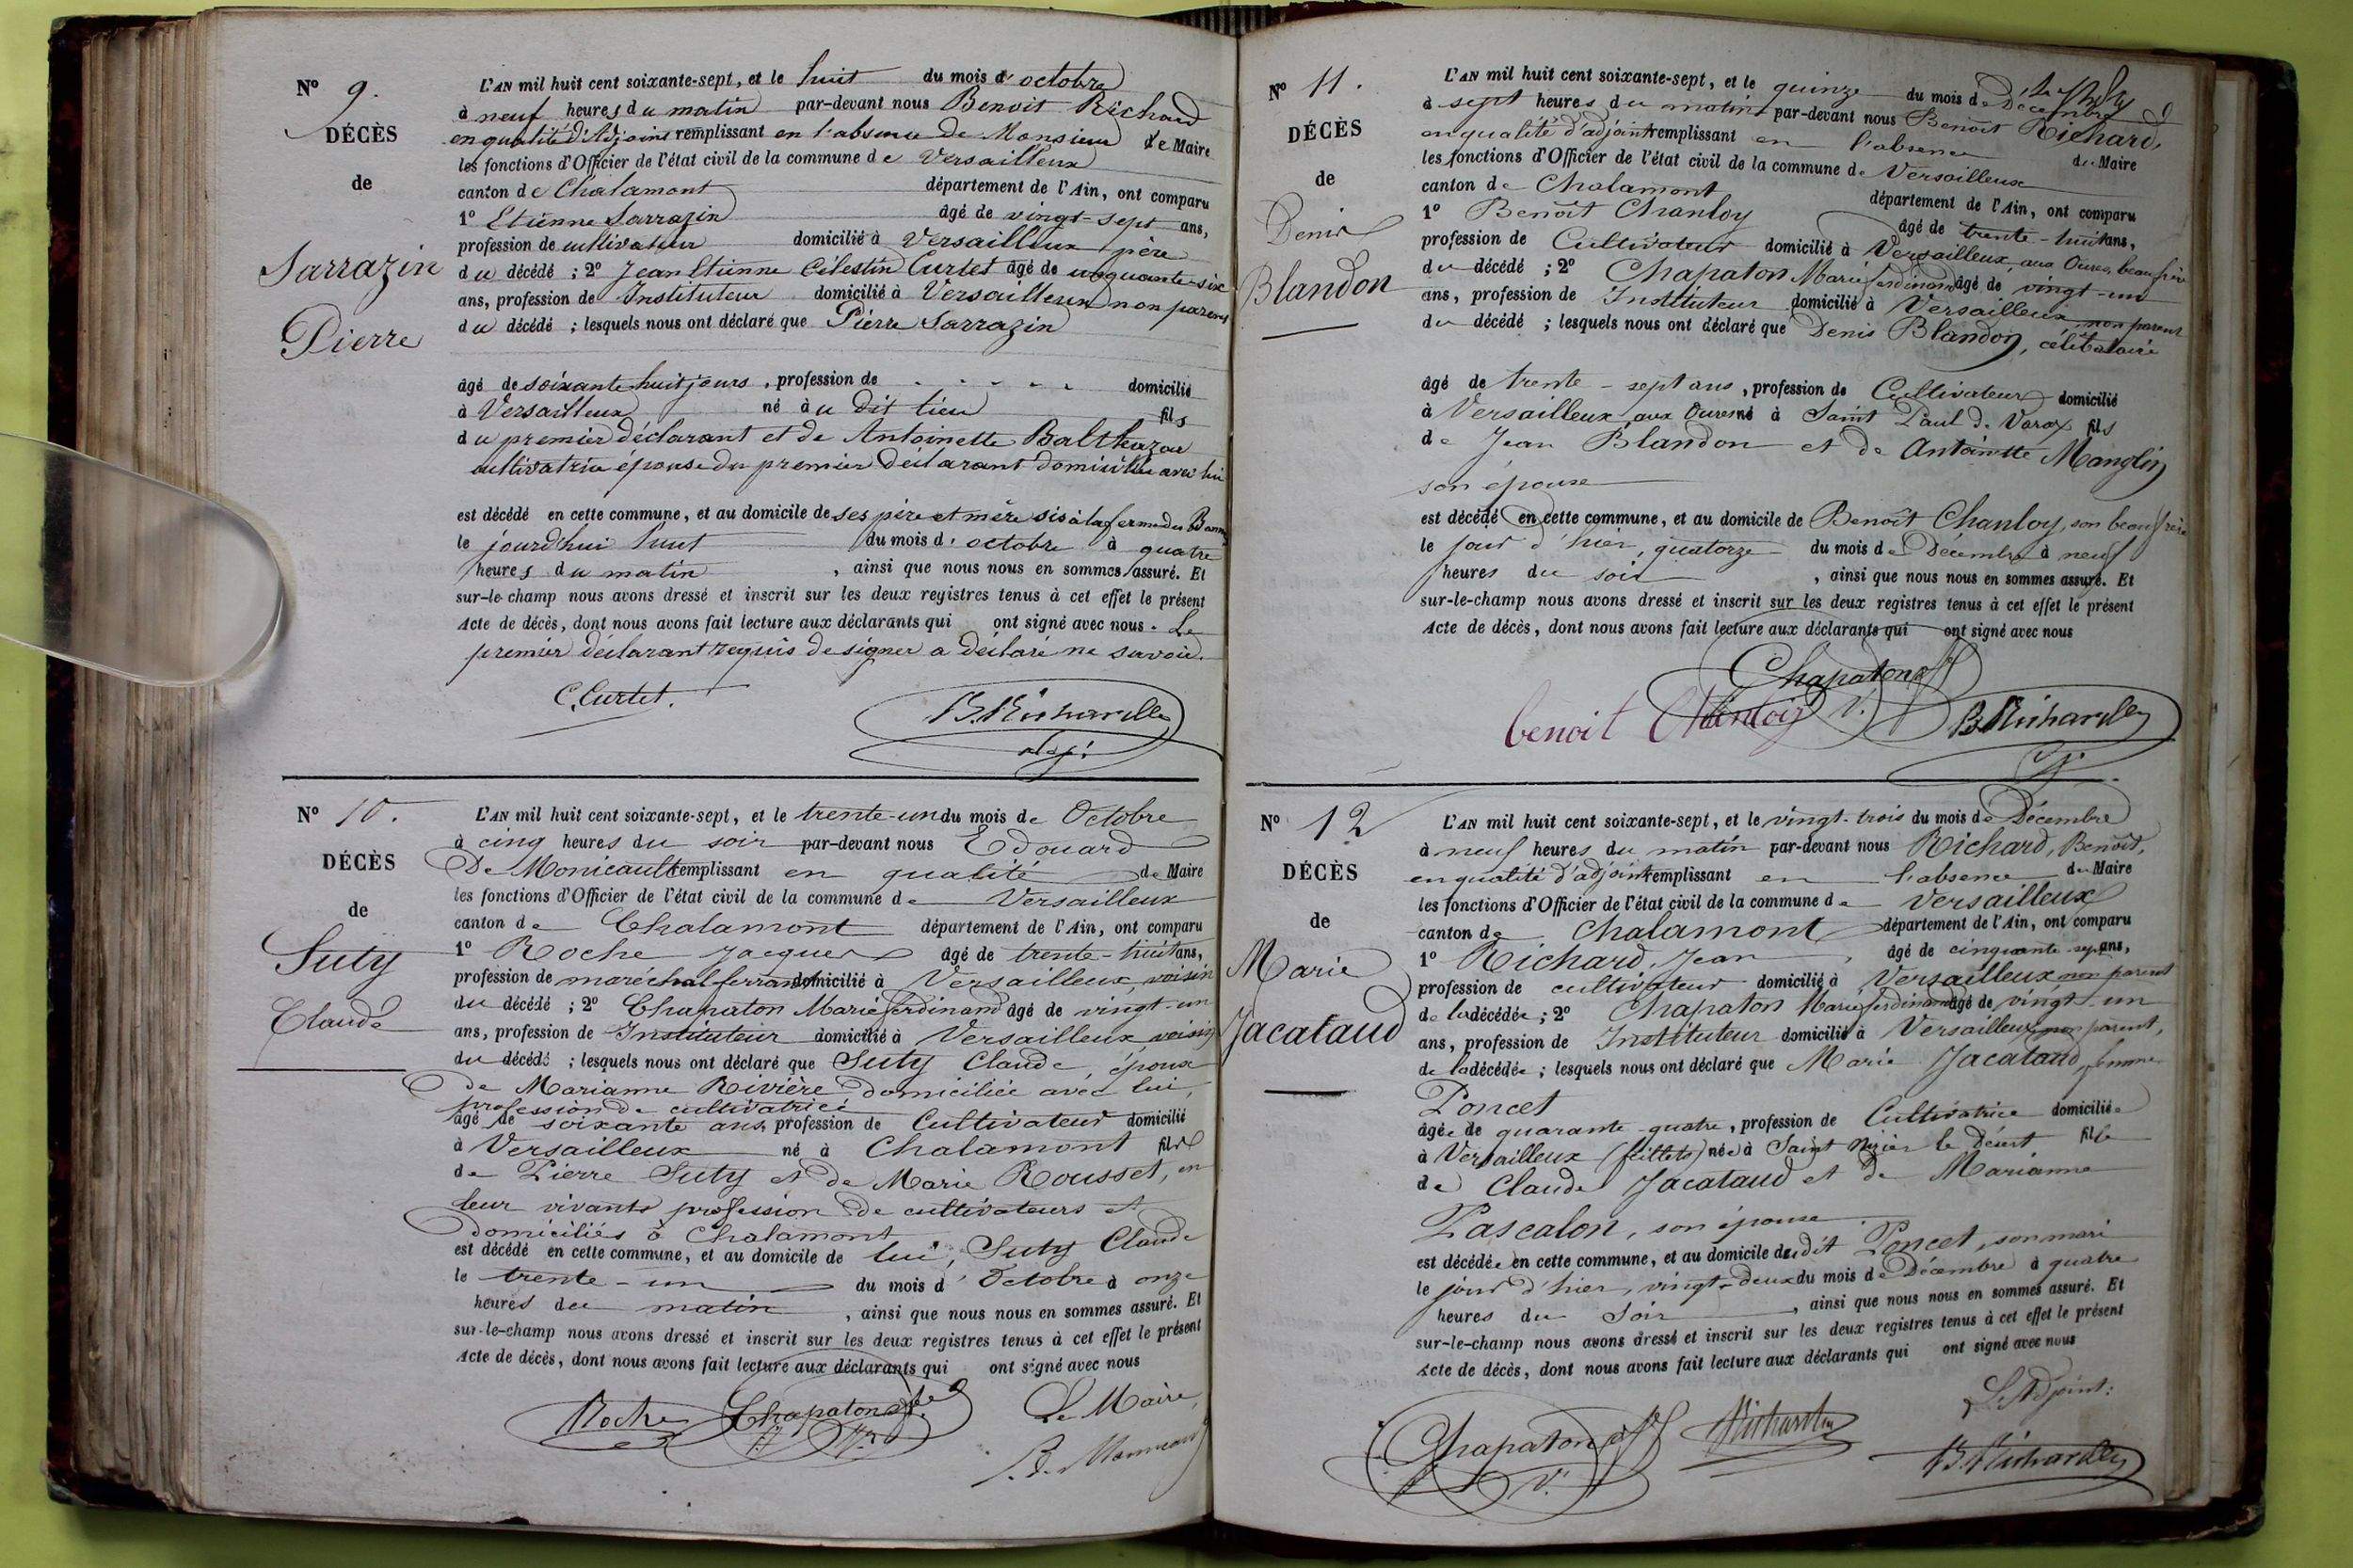 N° 9.
DÉCÈS
de
Sarrazin
Pierre
L'AN mil huit cent soixante-sept, et le huit du mois d'octobre
à neuf heures du matin par-devant nous Benoit Richard
en qualité d'Adjoint remplissant en l'absence de Monsieur le Maire
les fonctions d'Officier de l'état civil de la commune de Versailleux
canton de Chalamont département de l'Ain, ont comparu
1° Etienne Sarrazin âgé de vingt-sept ans,
profession de cultivateur domicilié à Versailleux père
du décédé ; 2° Jean Etienne Célestin Curtet âgé de cinquante-six
ans, profession de Instituteur domicilié à Versailleux non parent
du décédé ; lesquels nous ont déclaré que Pierre Sarrazin
âgé de soixante huit jours, profession de - - - - - domicilié
à Versailleux né au dit lieu fils
du premier déclarant et de Antoinette Balthazar
cultivatrice épouse du premier déclarant domiciliée avec lui
est décédé en cette commune, et au domicile de ses père et mère sis à la ferme des
le jourd'hui huit du mois d'octobre à quatre
heures du matin, ainsi que nous nous en sommes assuré. Et
sur-le-champ nous avons dressé et inscrit sur les deux registres tenus à cet effet le présent
Acte de décès, dont nous avons fait lecture aux déclarants qui ont signé avec nous. Le
premier déclarant requis de signer a déclaré ne savoir.
C. Curtet.
B. Richard
adj.
N° 10.
DÉCÈS
de
Suty
Claude
L'AN mil huit cent soixante-sept, et le trente-un du mois de Octobre
à cinq heures du soir par-devant nous Edouard
De Monicault remplissant en qualité de Maire
les fonctions d'Officier de l'état civil de la commune de Versailleux
canton de Chalamont département de l'Ain, ont comparu
1° Roche Jacques âgé de trente-huit ans,
profession de maréchal ferrant domicilié à Versailleux, voisin
du décédé ; 2° Chapaton Marie Ferdinand âgé de vingt-un
ans, profession de Instituteur domicilié à Versailleux, voisin
du décédé ; lesquels nous ont déclaré que Suty Claude, époux
de Marianne Rivière domiciliée avec lui,
profession de cultivatrice
âgé de soixante ans, profession de Cultivateur domicilié
à Versailleux né à Chalamont fils
de Pierre Suty et de Marie Rousset, en
leur vivants profession de cultivateurs et
domiciliés à Chalamont
est décédé en cette commune, et au domicile de lui, Suty Claude
le trente-un du mois d'Octobre à onze
heures du matin, ainsi que nous nous en sommes assuré. Et
sur-le-champ nous avons dressé et inscrit sur les deux registres tenus à cet effet le présent
Acte de décès, dont nous avons fait lecture aux déclarants qui ont signé avec nous
Roche Chapaton
Le Maire,
N° 11.
DÉCÈS
de
Denis
Blandon
L'AN mil huit cent soixante-sept, et le quinze du mois de Décembre
à sept heures du matin par-devant nous Benoit Richard,
en qualité d'adjoint remplissant en l'absence du Maire
les fonctions d'Officier de l'état civil de la commune de Versailleux
canton de Chalamont département de l'Ain, ont comparu
1° Benoît Chanloy âgé de trente-huit ans,
profession de Cultivateur domicilié à Versailleux, aux Oures, beau frère
du décédé ; 2° Chapaton Marie Ferdinand âgé de vingt-un
ans, profession de Instituteur domicilié à Versailleux, non parent
du décédé ; lesquels nous ont déclaré que Denis Blandon, célibataire
âgé de trente-sept ans, profession de Cultivateur domicilié
à Versailleux, aux Oures né à Saint Paul de Varax fils
de Jean Blandon et de Antoinette Manglin
son épouse
est décédé en cette commune, et au domicile de Benoît Chanloy, son beau frère
le jour d'hier, quatorze du mois de Décembre à neuf
heures du soir, ainsi que nous nous en sommes assuré. Et
sur-le-champ nous avons dressé et inscrit sur les deux registres tenus à cet effet le présent
Acte de décès, dont nous avons fait lecture aux déclarants qui ont signé avec nous
Chapaton
benoit Chanloy
B. Richard
N° 12
DÉCÈS
de
Marie
Jacataud
L'AN mil huit cent soixante-sept, et le vingt-trois du mois de Décembre
à neuf heures du matin par-devant nous Richard, Benoît,
en qualité d'adjoint remplissant en l'absence du Maire
les fonctions d'Officier de l'état civil de la commune de Versailleux
canton de Chalamont département de l'Ain, ont comparu
1° Richard, Jean, âgé de cinquante-sept ans,
profession de cultivateur domicilié à Versailleux non parent
de la décédée ; 2° Chapaton Marie Ferdinand âgé de vingt-un
ans, profession de Instituteur domicilié à Versailleux, non parent,
de la décédée ; lesquels nous ont déclaré que Marie Jacataud, femme
Poncet
âgée de quarante-quatre, profession de Cultivatrice domiciliée
à Versailleux née à Saint Nizier le Désert fille
de Claude Jacataud et de Marianne
Pascalon, son épouse
est décédée en cette commune, et au domicile dudit Poncet, son mari
le jour d'hier, vingt-deux du mois de Décembre à quatre
heures du Soir, ainsi que nous nous en sommes assuré. Et
sur-le-champ nous avons dressé et inscrit sur les deux registres tenus à cet effet le présent
Acte de décès, dont nous avons fait lecture aux déclarants qui ont signé avec nous
L'Adjoint:
Chapaton Richard
B. Richard